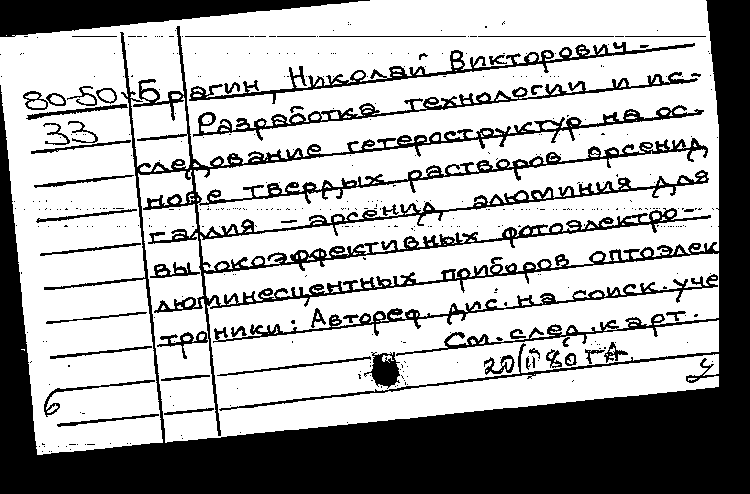 80-50к Брагин, Николай Викторович.-
33 Разработка технологии и ис-
следование гетероструктур на ос-
нове твердых растворов арсенид
галлия - арсенид алюминия для
высокоэффективных фотоэлектро-
люминесцентных приборов оптоэлек
троники: Автореф. дис. на соиск. уче
См. след. карт.
20/II 80 ГА.
6